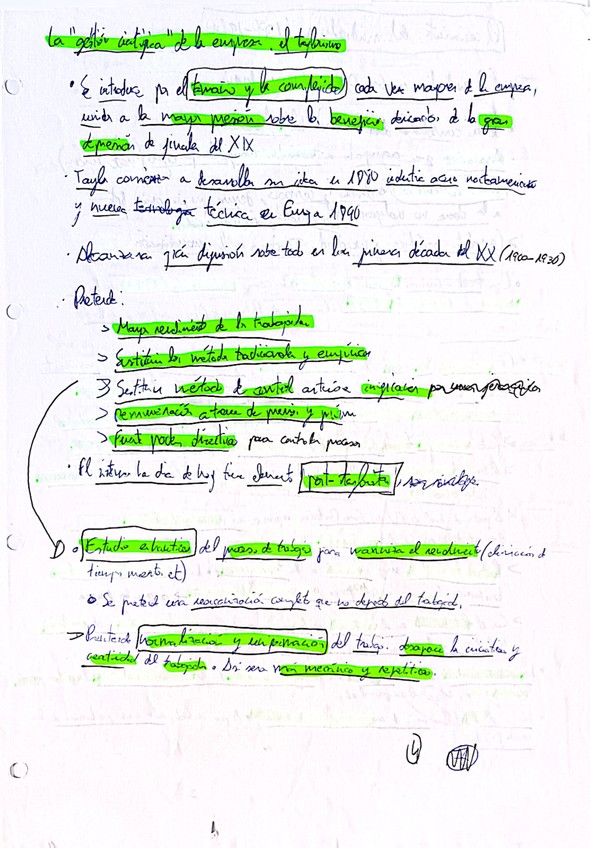 La "gestión científica" de la empresa: el taylorismo
· Se introduce por el tamaño y la complejidad cada vez mayores de la empresa,
unida a la mayor presión sobre los beneficios derivados de la gran
depresión de finales del XIX
· Taylor comienza a desarrollar su idea en 1880 industria acero norteamericano
y nueva tecnología técnica en Europa 1890
· Alcanzaran gran difusión sobre todo en las primera década del XX (1900-1930)
· Pretende:
> Mayor rendimiento de los trabajadores
> Sustituir los métodos tradicionales y empíricos
> Sustituir métodos de control anteriores por
> remuneración a traves de primas y
> Fuerte poder directivo para controlar proceso
· El interes la dia de hoy tiene elementos post-taylorista,
Estudio exhaustivo del proceso de trabajo para maximizar el rendimiento (eliminación de
tiempo muerto, etc)
Se pretende una reorganización completa que no dependa del trabajador.
> Pretende normalización y uniformación del trabajo. desaparece la iniciativa y
creatividad del trabajador. Asi sera más mecánico y repetitivo.